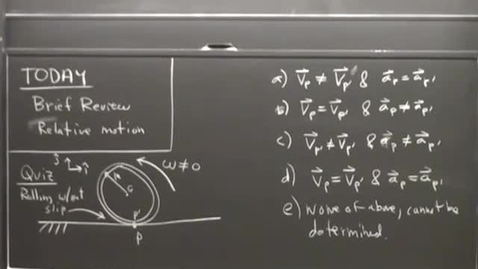 TODAY
Brief Review
Relative motion
Quiz
Rolling w/out
slip
ω≠0
R
C
P'
P
a) V⃗p ≠ V⃗p' & a⃗p = a⃗p'
b) V⃗p = V⃗p' & a⃗p ≠ a⃗p'
c) V⃗p ≠ V⃗p' & a⃗p ≠ a⃗p'
d) V⃗p = V⃗p' & a⃗p = a⃗p'
e) None of above, cannot be
determined.